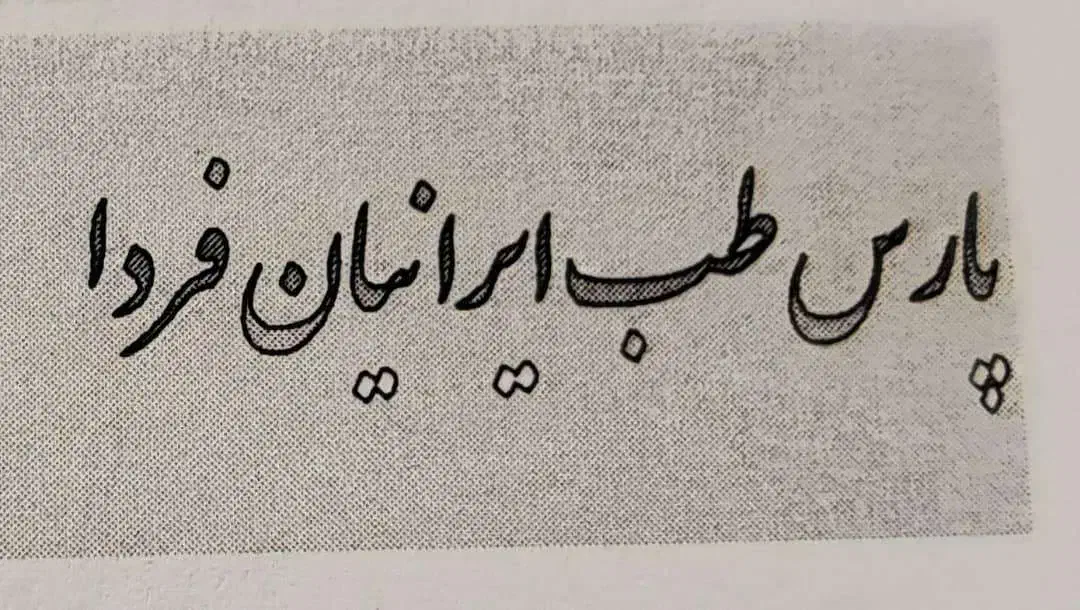 پارس طب ایرانیان فردا